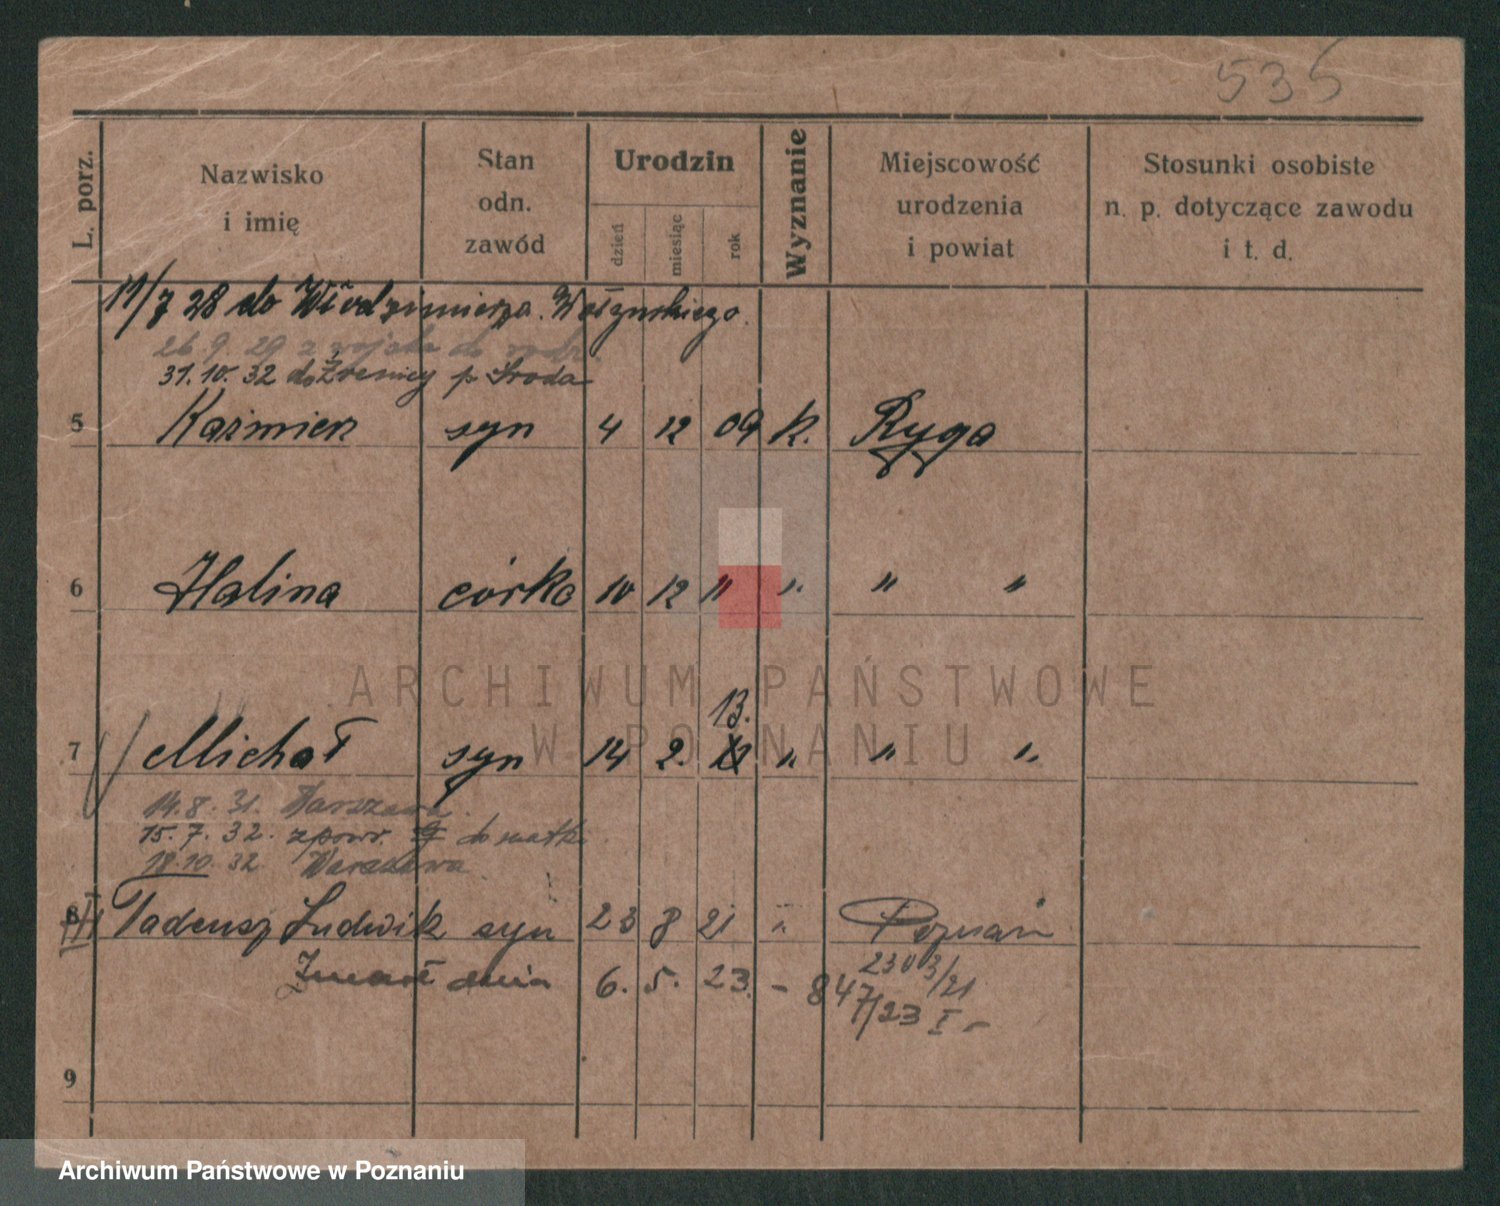 535
L. porz.
Nazwisko
i imię
Stan
odn.
zawód
Urodzin
dzień
miesiąc
rok
Wyznanie
Miejscowość
urodzenia
i powiat
Stosunki osobiste
n. p. dotyczące zawodu
i t. d.
11/7 28 do Włodzimierza. Wołynskiego.
26 9. 29 z wojska do rodz.
31. 10. 32 do Źrenicy p Środa
5 Kazimierz syn 4 12 09 k. Ryga
6 Halina córka 10 12 11 " " "
13.
7 Michał syn 14 2. " " "
14. 8. 31. Warszawa.
15. 7. 32. zpowr. do matki
18.10. 32 Warszawa
8 Tadeusz Ludwik syn 23 8 21 " Poznań
2303/21
Zmarł dnia 6. 5. 23. - 847/23 I -
9
ARCHIWUM PAŃSTWOWE
W POZNANIU
Archiwum Państwowe w Poznaniu